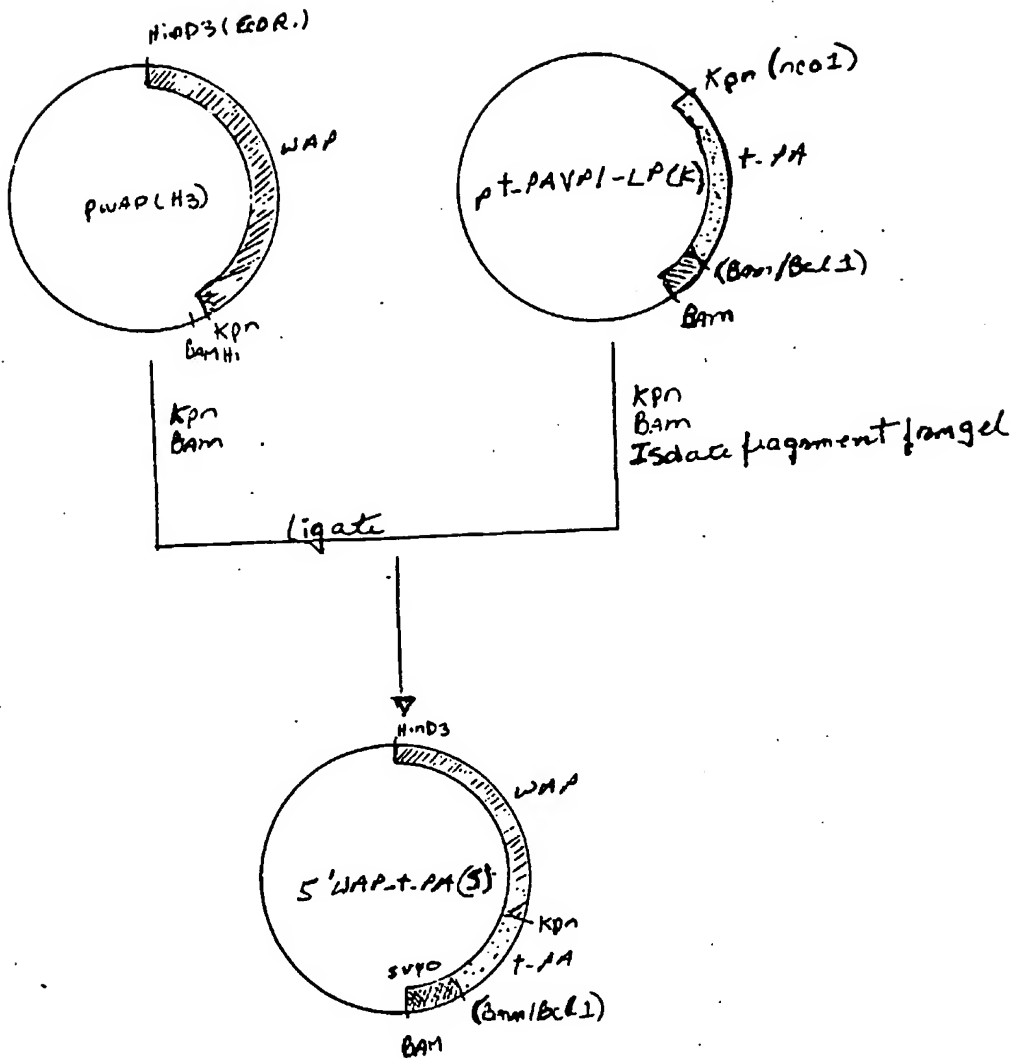 HinD3 (EcoR.)
WAP
pWAP(H3)
Kpn
BAMHI
Kpn (nco1)
t-PA
pt-PAVP1-LP(K)
(Bam/Bcl 1)
BAM
Kpn
BAM
Kpn
BAM
Isolate fragment from gel
Ligate
HinD3
WAP
5'WAP-t-PA(S)
Kpn
t-PA
SV40
(Bam/Bcl 1)
BAM